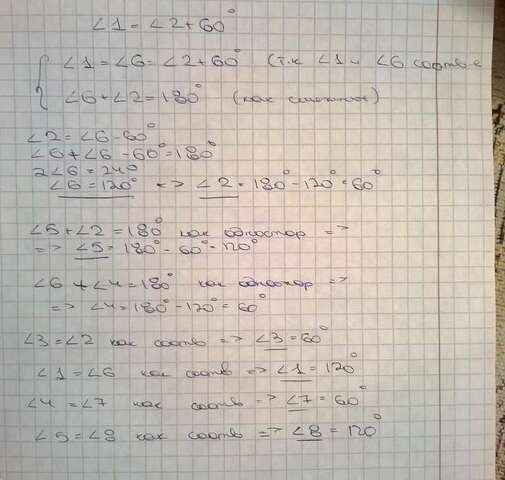 ∠1 = ∠2 + 60°
{ ∠1 = ∠6 = ∠2 + 60° (т.к ∠1 и ∠6 соотв е
∠6 + ∠2 = 180° (как смежные)
∠2 = ∠6 - 60°
∠6 + ∠6 - 60° = 180°
2∠6 = 240°
∠6 = 120° => ∠2 = 180° - 120° = 60°
∠5 + ∠2 = 180° как одностор =>
=> ∠5 = 180° - 60° = 120°
∠6 + ∠4 = 180° как одностор =>
=> ∠4 = 180° - 120° = 60°
∠3 = ∠2 как соотв => ∠3 = 60°
∠1 = ∠6 как соотв => ∠1 = 120°
∠4 = ∠7 как соотв => ∠7 = 60°
∠5 = ∠8 как соотв => ∠8 = 120°